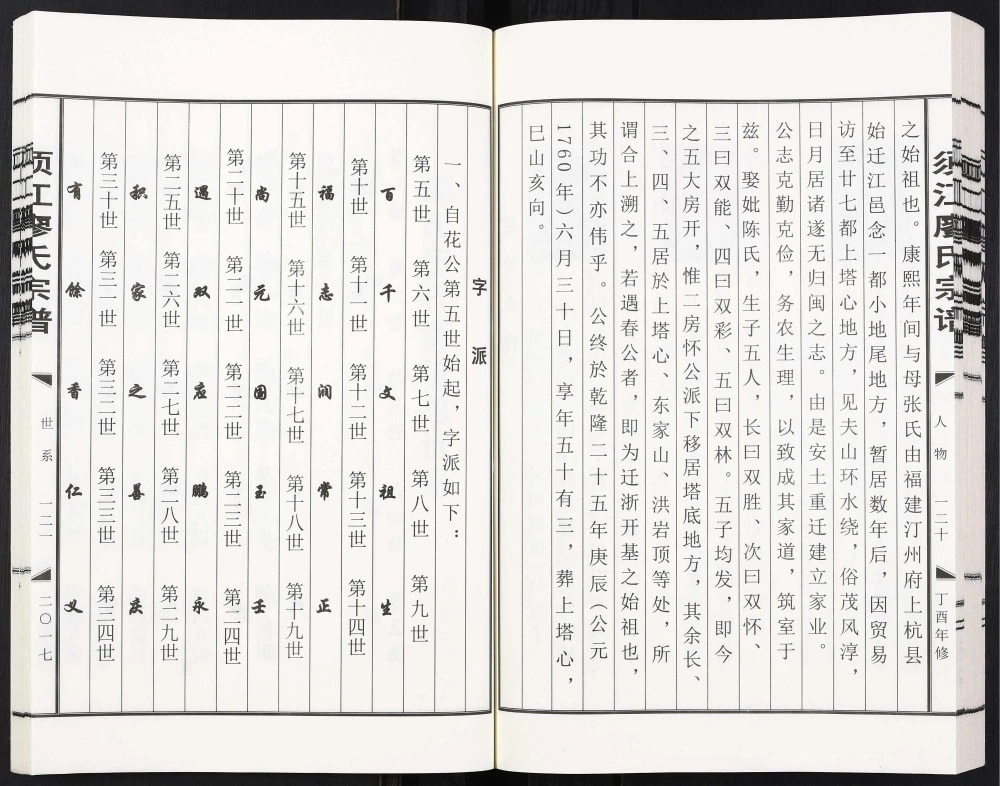 须江廖氏宗谱
人物
一二十
丁酉年修
之始祖也。康熙年间与母张氏由福建汀州府上杭县
始迁江邑念一都小地尾地方，暂居数年后，因贸易
访至廿七都上塔心地方，见夫山环水绕，俗茂风淳，
日月居诸遂无归闽之志。由是安土重迁建立家业。
公志克勤克俭，务农生理，以致成其家道，筑室于
兹。娶妣陈氏，生子五人，长曰双胜、次曰双怀、
三曰双能、四曰双彩、五曰双林。五子均发，即今
之五大房开，惟二房怀公派下移居塔底地方，其余长、
三、四、五居於上塔心、东家山、洪岩顶等处，所
谓合上溯之，若遇春公者，即为迁浙开基之始祖也，
其功不亦伟乎。公终於乾隆二十五年庚辰（公元
1760年）六月三十日，享年五十有三，葬上塔心，
巳山亥向。
字派
一、自花公第五世始起，字派如下：
第五世 第六世 第七世 第八世 第九世
百 千 文 祖 生
第十世 第十一世 第十二世 第十三世 第十四世
福 志 润 常 正
第十五世 第十六世 第十七世 第十八世 第十九世
尚 元 国 玉 壬
第二十世 第二一世 第二二世 第二三世 第二四世
遇 双 应 鹏 永
第二五世 第二六世 第二七世 第二八世 第二九世
积 家 之 善 庆
第三十世 第三一世 第三二世 第三三世 第三四世
有 馀 香 仁 义
须江廖氏宗谱
世系
一二一
二〇一七